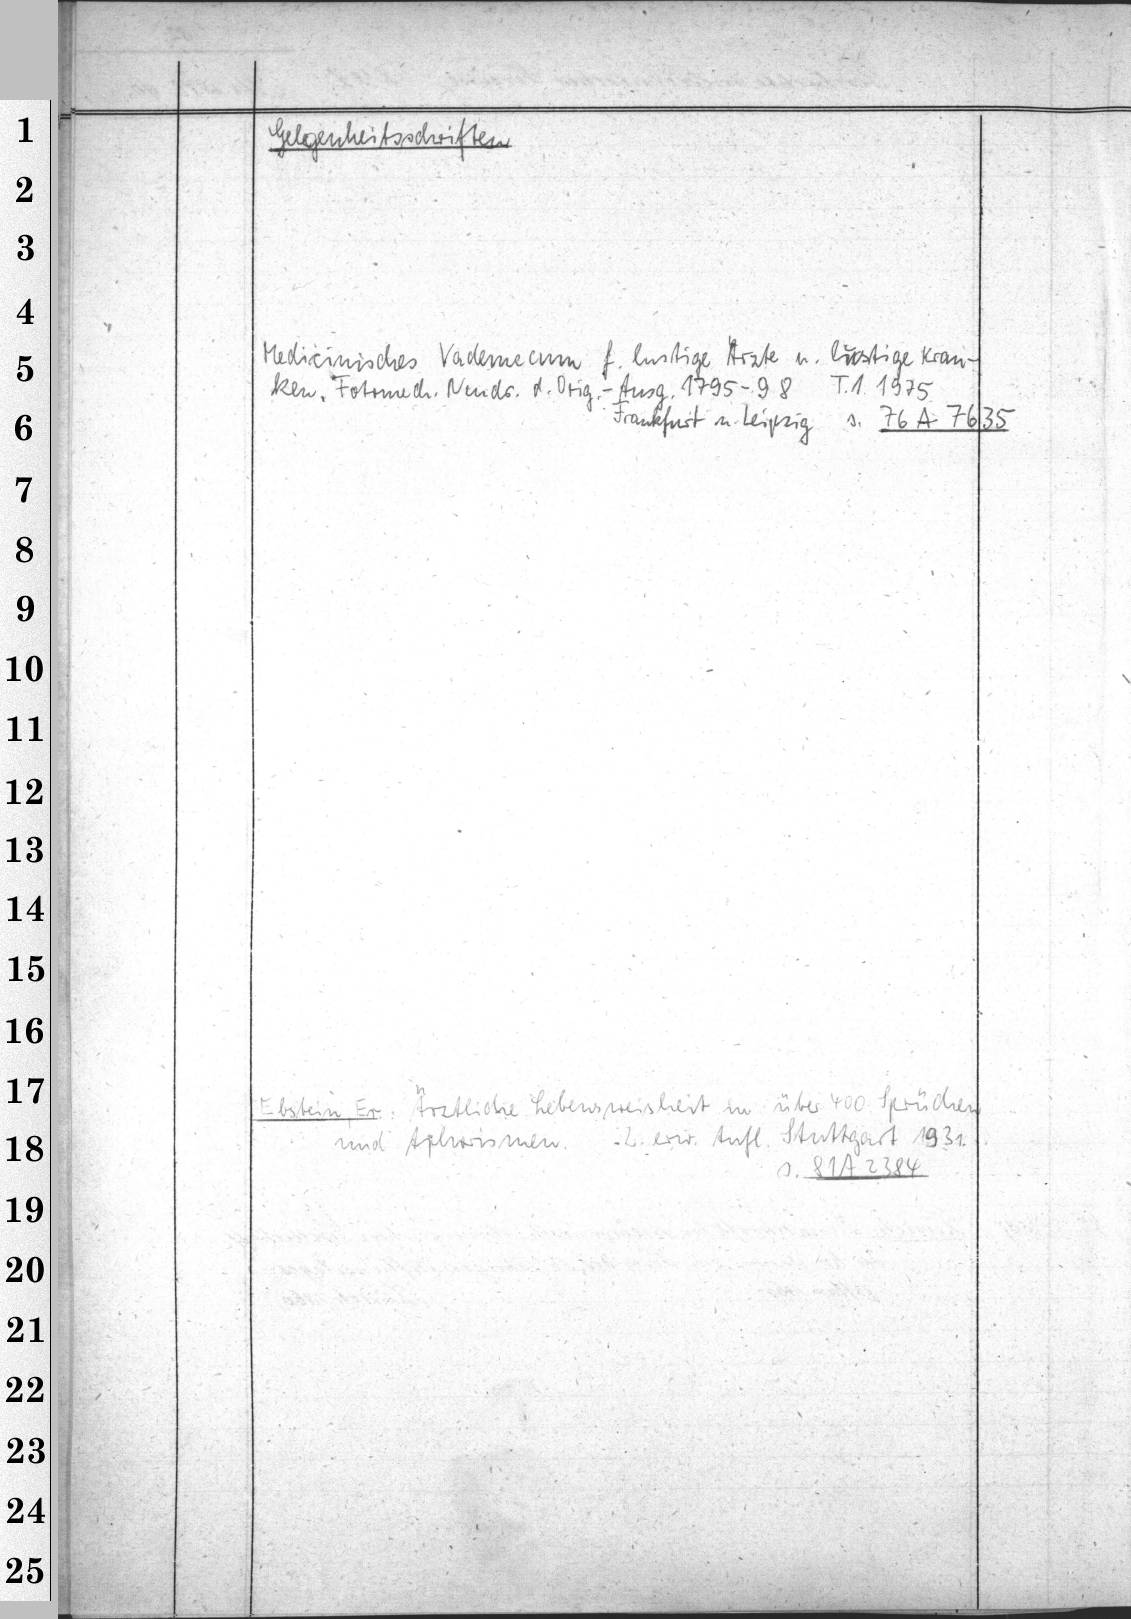 1
2
3
4
5
6
7
8
9
10
11
12
13
14
15
16
17
18
19
20
21
22
23
24
25
Gelegenheitsschriften
Medicinisches Vademecum f. lustige Ärzte u. lustige Kran-
ken. Fotomech. Neudr. d. Orig.-Ausg. 1795-98 T.1 1975
Frankfurt u. Leipzig s. 76 A 7635
Ebstein Er.: Ärztliche Lebensweisheit in über 400 Sprüchen
und Aphorismen. 2. erw. Aufl. Stuttgart 1931.
s. 81A 2384